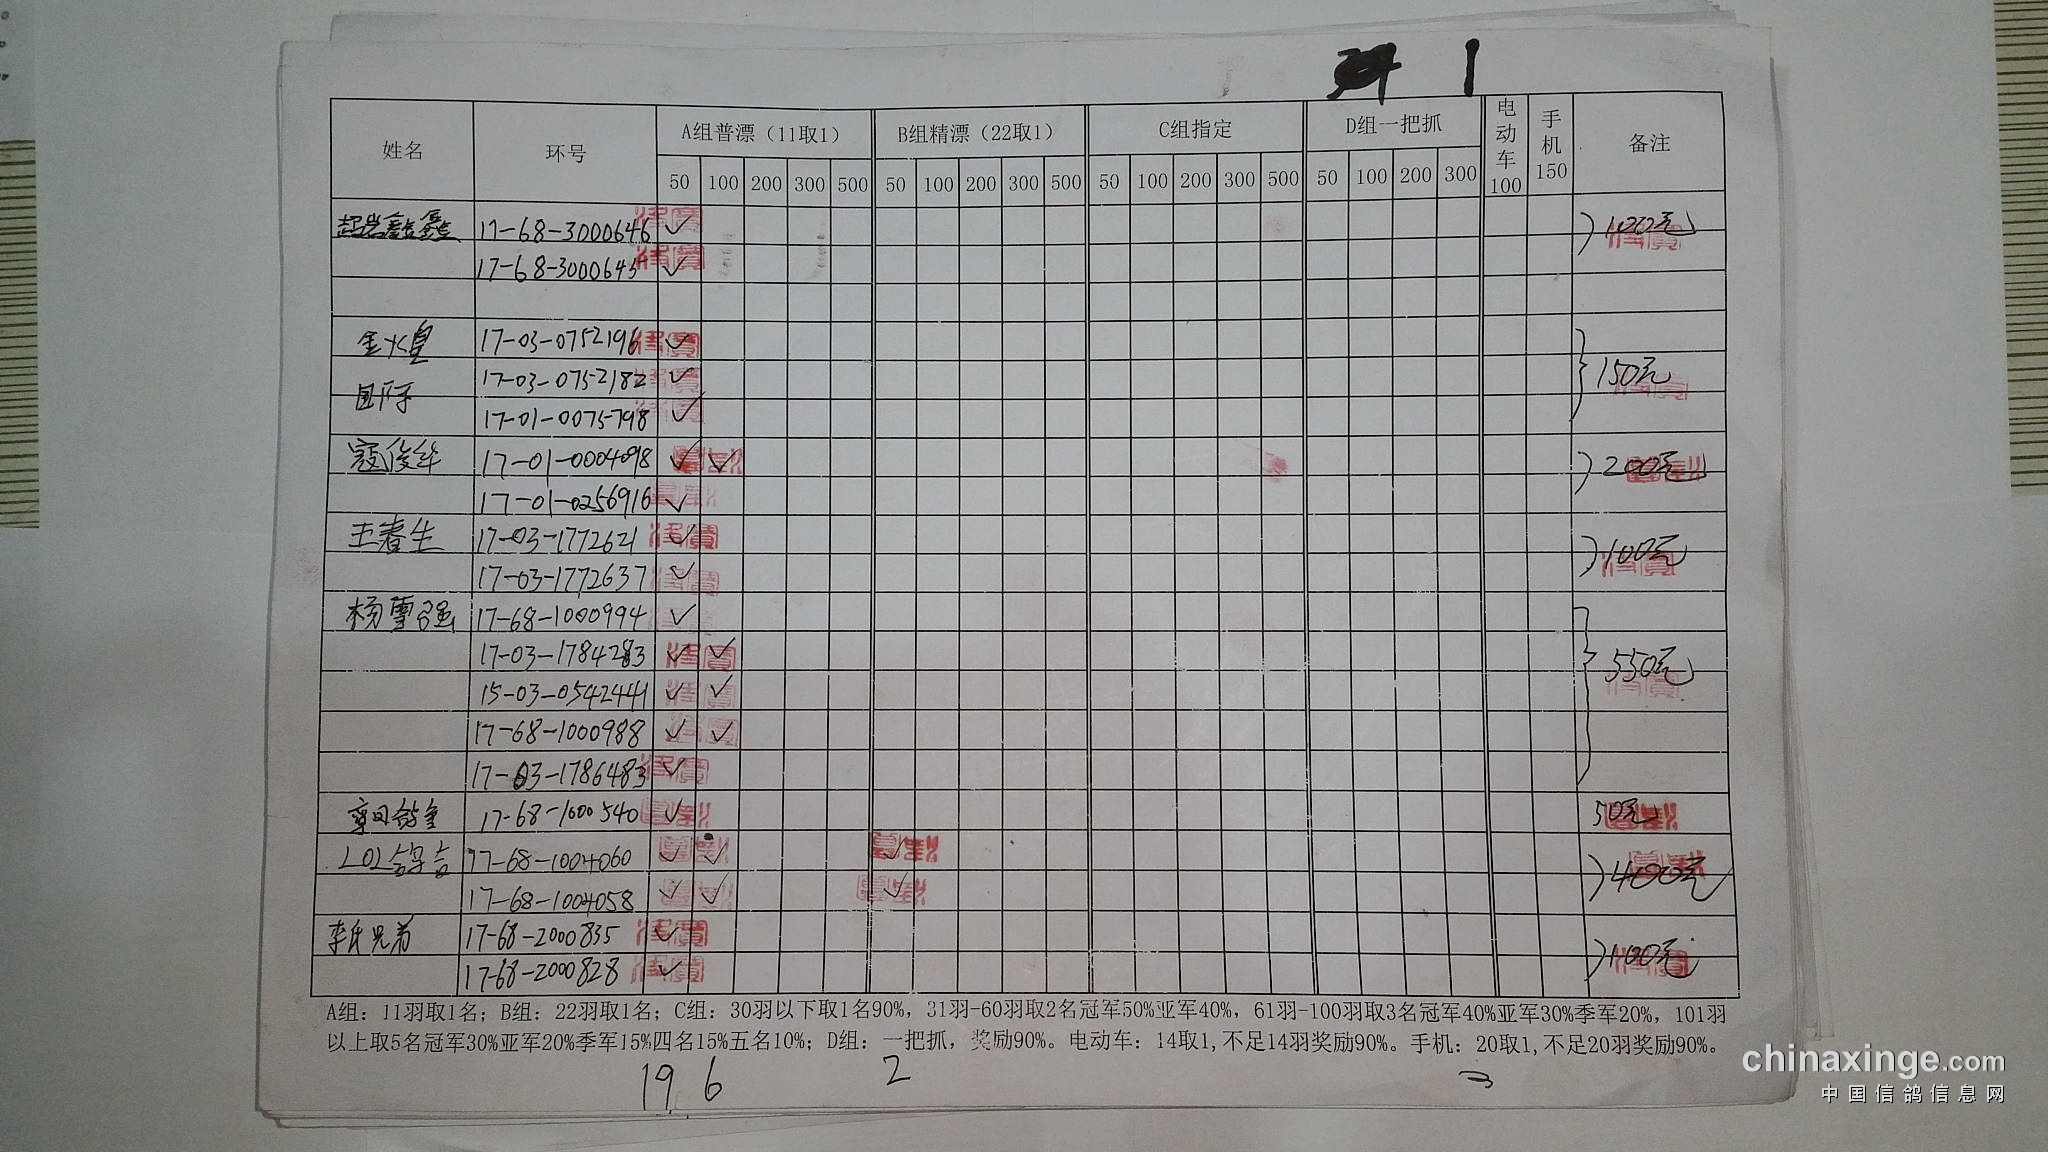 1
姓名 环号 A组普漂（11取1） B组精漂（22取1） C组指定 D组一把抓 电动车100 手机150 备注
50 100 200 300 500 50 100 200 300 500 50 100 200 300 500 50 100 200 300
17-68-3000646 ✓ 100元
17-68-3000645 ✓
金火皇 17-03-0752196 ✓
国际 17-03-0752182 ✓ 150元
17-01-0075798 ✓
寇俊华 17-01-0004098 ✓ ✓ 200元
17-01-0256916 ✓
王春生 17-03-1772621 ✓ 100元
17-03-1772637 ✓
杨雪强 17-68-1000994 ✓
17-03-1784283 ✓ ✓ 550元
15-03-0542441 ✓ ✓
17-68-1000988 ✓ ✓
17-03-1786483 ✓
17-68-1000540 ✓ 50元
17-68-1004060 ✓ ✓ ✓ 400元
17-68-1004058 ✓ ✓ ✓
李氏兄弟 17-68-2000835 ✓ 100元
17-68-2000828 ✓
A组：11羽取1名；B组：22羽取1名；C组：30羽以下取1名90%，31羽-60羽取2名冠军50%亚军40%，61羽-100羽取3名冠军40%亚军30%季军20%，101羽
以上取5名冠军30%亚军20%季军15%四名15%五名10%；D组：一把抓，奖励90%。电动车：14取1,不足14羽奖励90%。手机：20取1,不足20羽奖励90%。
19 6 2
chinaxinge.com
中国信鸽信息网